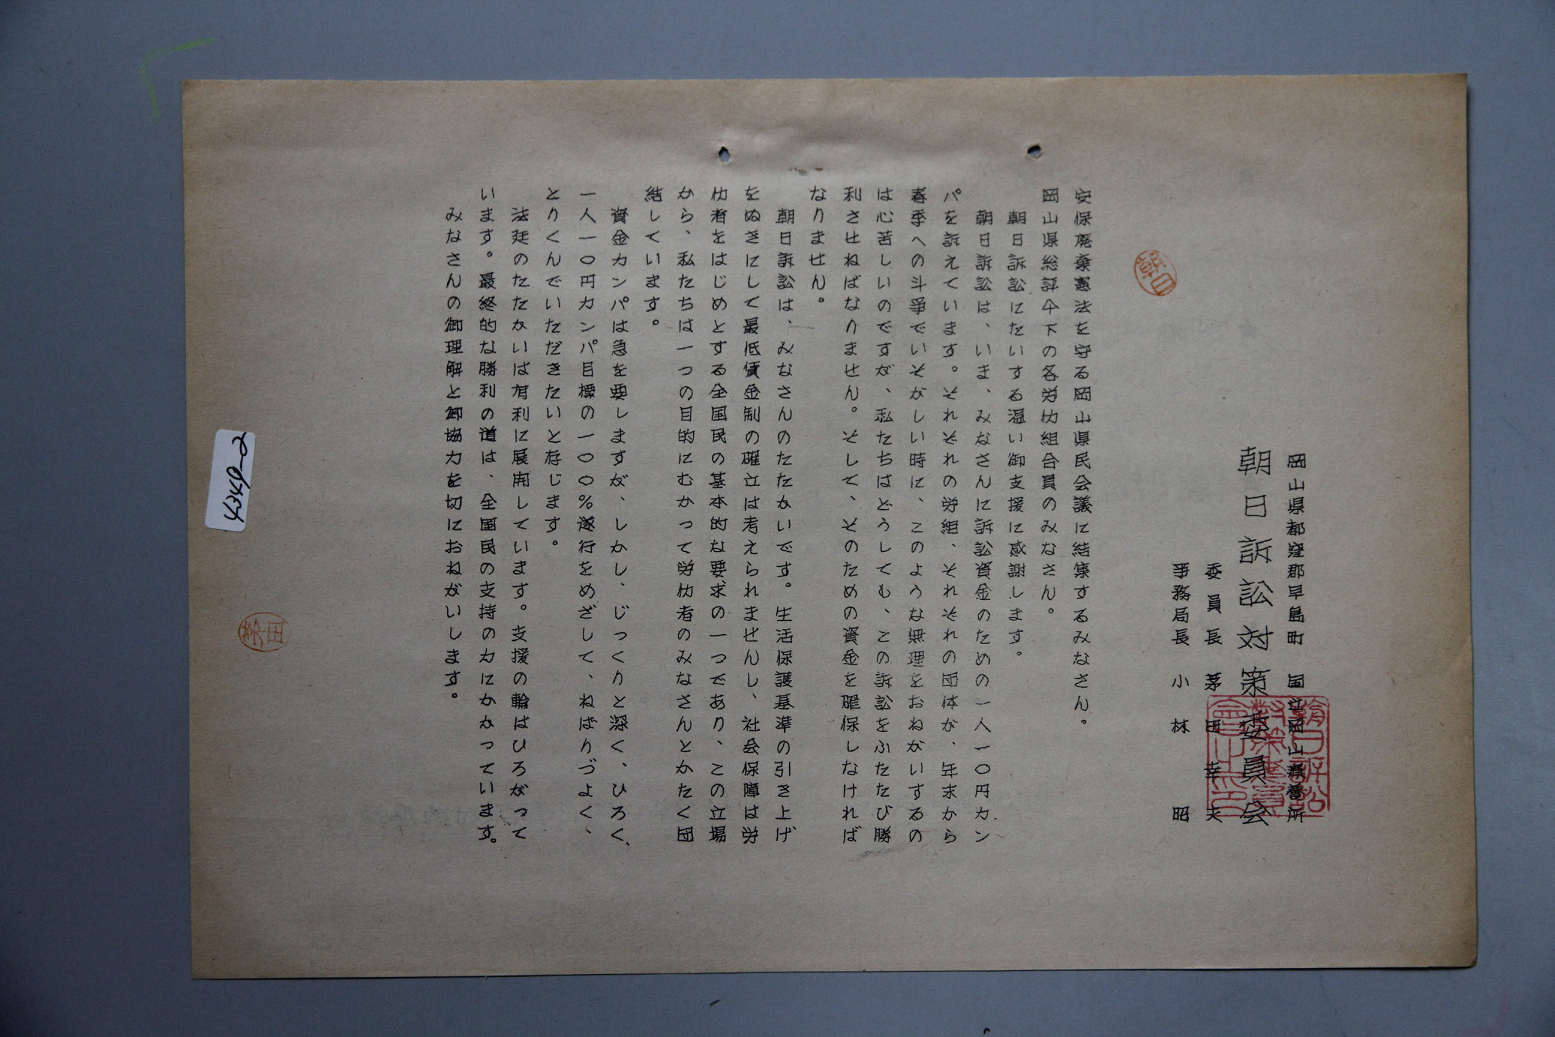 岡山県都窪郡早島町　国立岡山療養所
朝日訴訟対策委員会
委員長　茅田幸夫
事務局長　小林昭
朝日
安保廃棄憲法を守る岡山県民会議に結集するみなさん。
岡山県総評傘下の各労仂組合員のみなさん。
朝日訴訟にたいする温い御支援に感謝します。
朝日訴訟は、いま、みなさんに訴訟資金のための一人一〇円カン
パを訴えています。それぞれの労組、それぞれの団体が、年末から
春季への斗争でいそがしい時に、このような無理をおねがいするの
は心苦しいのですが、私たちはどうしても、この訴訟をふたたび勝
利させねばなりません。そして、そのための資金を確保しなければ
なりません。
朝日訴訟は、みなさんのたたかいです。生活保護基準の引き上げ
をぬきにして最低賃金制の確立は考えられませんし、社会保障は労
仂者をはじめとする全国民の基本的な要求の一つであり、この立場
から、私たちは一つの目的にむかって労仂者のみなさんとかたく団
結しています。
資金カンパは急を要しますが、しかし、じっくりと深く、ひろく、
一人一〇円カンパ目標の一〇〇％遂行をめざして、ねばりづよく、
とりくんでいただきたいと存じます。
法廷のたたかいは有利に展開しています。支援の輪はひろがって
います。最終的な勝利の道は、全国民の支持の力にかかっています。
みなさんの御理解と御協力を切におねがいします。